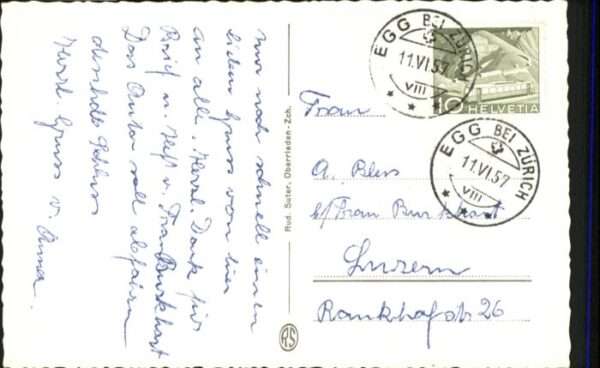 nur noch schnell einen
lieben Gruss von hier
an alle. Herzl. Dank für
Brief u. Heft v. Frau Burkhart
Das Auto soll abfahren
deshalb Schluss
Herzl. Gruss v. Anna.
Rud. Suter, Oberrieden-Zch.
RS
EGG BEI ZÜRICH
11.VI.57
VIII
10 HELVETIA
EGG BEI ZÜRICH
11.VI.57
VIII
Frau
A. Bless
b/ Frau Burkhart
Luzern
Rankhofstr. 26